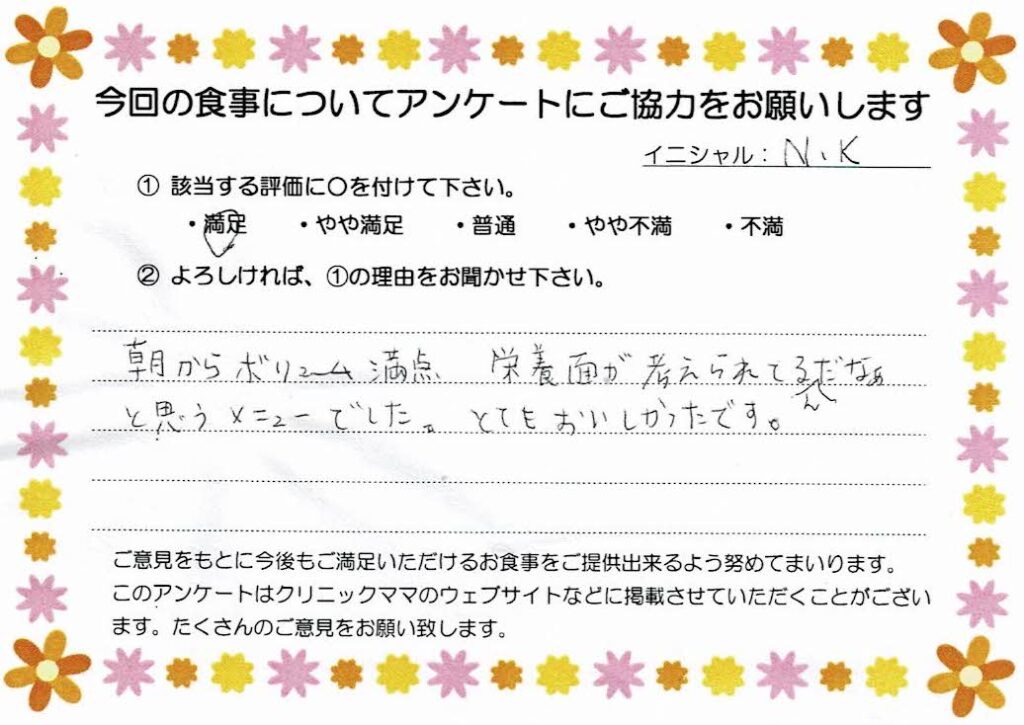 今回の食事についてアンケートにご協力をお願いします
イニシャル：N、K
① 該当する評価に〇を付けて下さい。
・満足 ・やや満足 ・普通 ・やや不満 ・不満
② よろしければ、①の理由をお聞かせ下さい。
朝からボリューム満点 栄養面が考えられてるんだなぁ
と思うメニューでした。とてもおいしかったです。
ご意見をもとに今後もご満足いただけるお食事をご提供出来るよう努めてまいります。
このアンケートはクリニックママのウェブサイトなどに掲載させていただくことがござい
ます。たくさんのご意見をお願い致します。